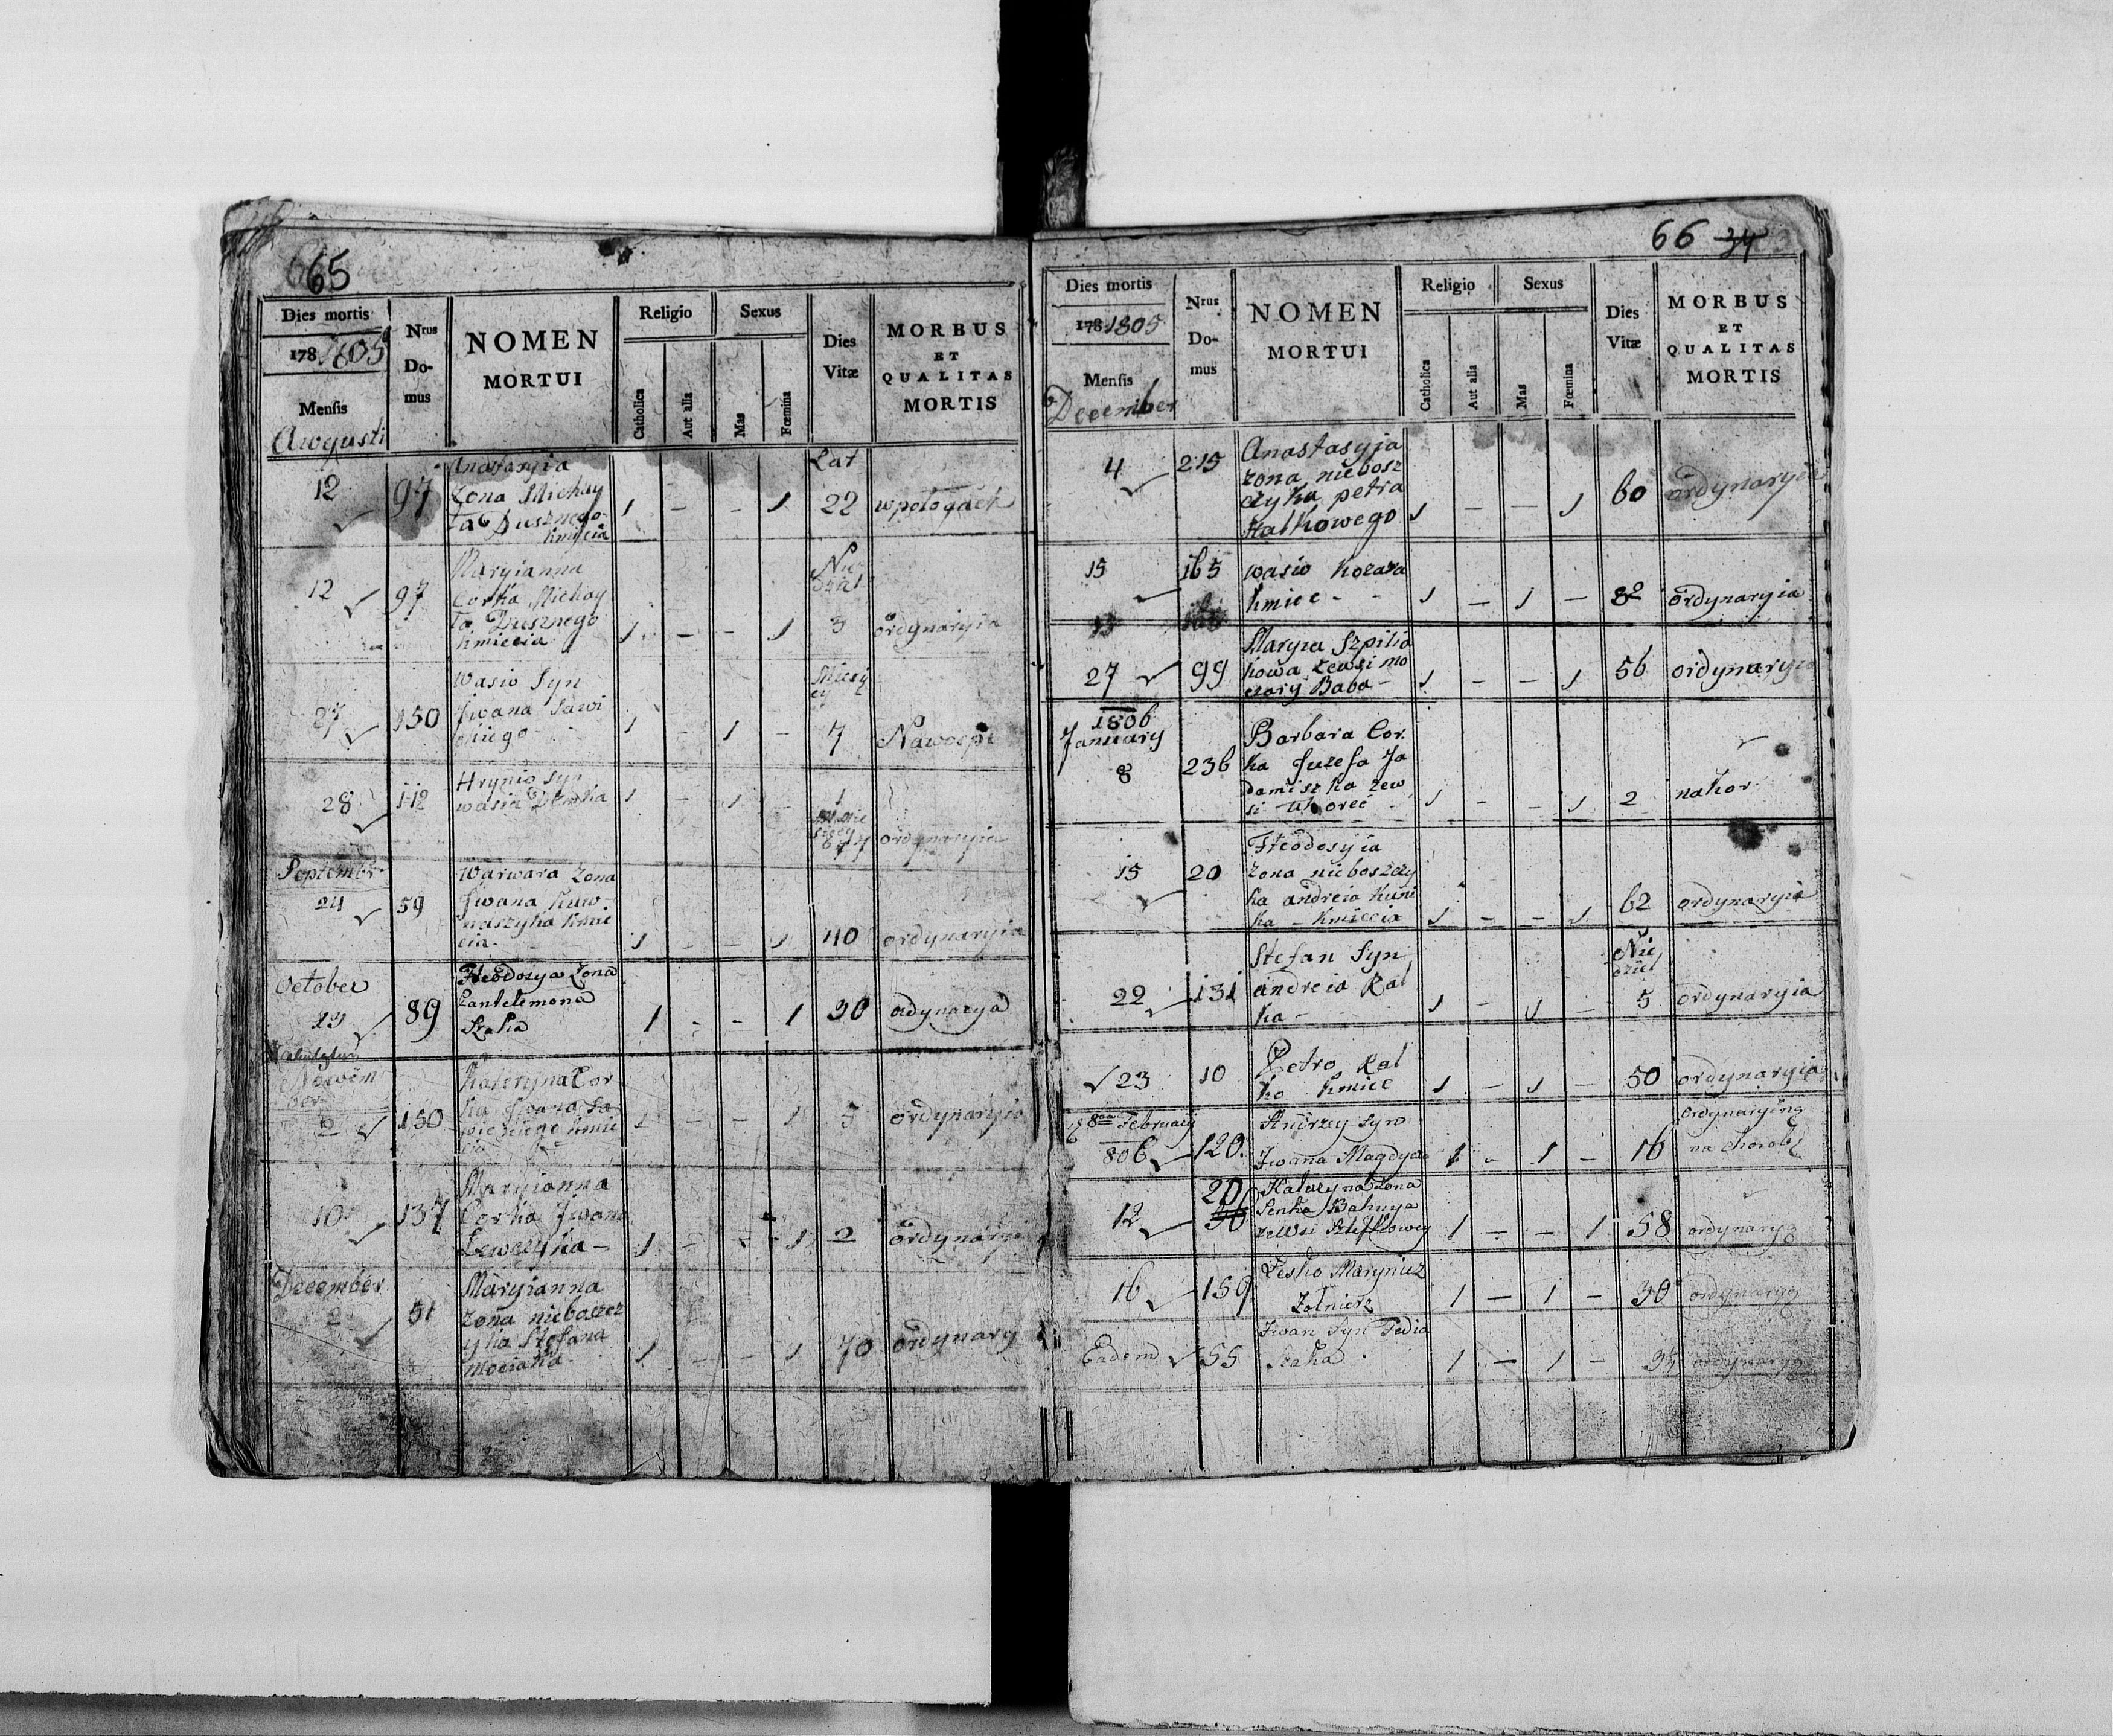 65
Dies mortis
178 1805
Mensis
Awgusti
Nrus
Do-
mus
NOMEN
MORTUI
Religio
Catholica
Aut alia
Sexus
Mas
Fœmina
Dies
Vitæ
MORBUS
ET
QUALITAS
MORTIS
12 97
Anastasyia
zona Michay
ła Dusznego
kmiecia
1 - - 1
Lat
22 wpołogach
12 97
Maryianna
Corka Michay
ła Dusznego
kmiecia
1 - - 1
Nie
dziel
3 ordynaryia
27 150
wasio Syn
Jwana Sawi
ckiego
1 - 1 -
Miesię
cy
7
28 112
Hrynio syn
wasia
1 - 1 -
ordynaryia
Septembr
24 59
Warwara zona
Jwana
kmie
cia
1 - - 1 40 ordynaryia
October
89
Fteodosya Zona
Pantelemona
Szaka
1 - - 1 30 ordynarya
Nowem
ber
2 150
Kateryna Cor
ka Jwana Sa
wickiego kmie
cia
1 - - 1 3 ordynaryia
10 137
Maryianna
Corka Jwana
Lewczyka -
1 - - 1 2 ordynaryi
December
2 51
Maryianna
zona nieboszcz
yka Stefana
Mociaka
1 - - 1 70 ordynary
66 34
Dies mortis
178 1805
Mensis
December
Nrus
Do-
mus
NOMEN
MORTUI
Religio
Catholica
Aut alia
Sexus
Mas
Fœmina
Dies
Vitæ
MORBUS
ET
QUALITAS
MORTIS
4 215
Anastasyja
zona niebosz
czyka petra
kalkowego
1 - - 1 60 ordynaryia
15 165
wasio Kozara
kmiec - -
1 - 1 - 82 ordynaryia
27 99
Maryia Szpilia
kowa zewsi mo
czary Baba -
1 - - 1 56 ordynaryia
1806
January
8 236
Barbara Cor
ka Juzefa Ja
damiszka zew
si
1 - - 1 2
15 20
Fteodosyia
zona nieboszczy
ka andreia kuni
ka - kmiecia
1 - - 1 62 ordynaryia
22 131
Stefan Syn
andreia kal
ka -
1 - 1 -
Nie
dziel
5 ordynaryia
23 10
Petro kal
ko kmiec
1 - 1 - 50 ordynaryia
8 February
806 120
Andrzey Syn
Jwana Magdycza
1 - 1 - 16
ordynaryiną
na Chorobę
12 20
Kataryna Zona
Senka
zeWsi
1 - - 1 58 ordynaryą
16 159
Fesko Marynicz
Zołnierz
1 - 1 - 30 ordynaryą
Eadem 55
Jwan Syn Fedia
Szaka
1 - 1 - ordynaryą